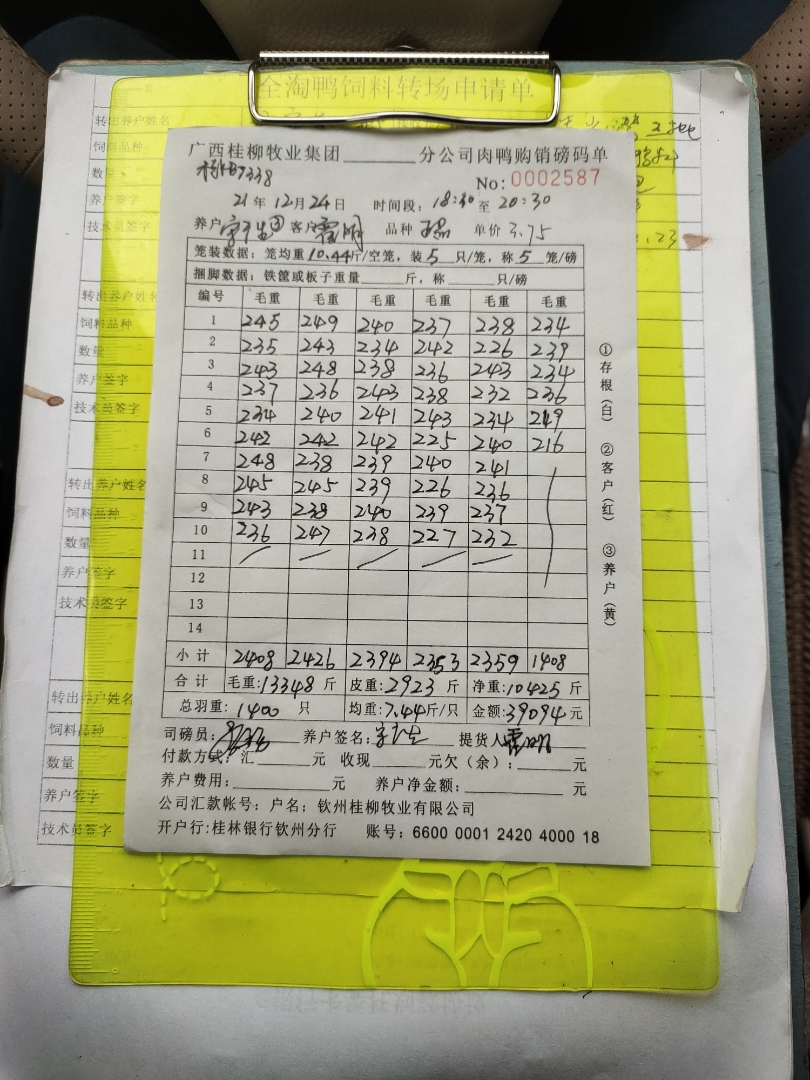 全淘鸭饲料转场申请单
转出养户姓名
饲料品种
数量
养户签字
技术员签字
转出养户姓名
饲料品种
数量
养户签字
技术员签字
转出养户姓名
饲料品种
数量
养户签字
技术员签字
转出养户姓名
饲料品种
数量
养户签字
技术员签字
广西桂柳牧业集团______分公司肉鸭购销磅码单
7338
No: 0002587
21年12月24日 时间段: 18:30至20:30
养户 客户 明 品种 单价 3.75
笼装数据: 笼均重10.44斤/空笼, 装5只/笼, 称5笼/磅
捆脚数据: 铁筐或板子重量______斤, 称______只/磅
编号 毛重 毛重 毛重 毛重 毛重 毛重
1 245 249 240 237 238 234
2 235 243 234 242 226 239
3 243 248 238 236 243 234
4 237 236 243 238 232 236
5 234 240 241 243 234 249
6 242 242 242 225 240 216
7 248 238 239 240 241
8 245 245 239 226 236
9 243 238 240 239 237
10 236 247 238 227 232
11
12
13
14
小计 2408 2426 2394 2353 2359 1408
合计 毛重:13348斤 皮重:2923斤 净重:10425斤
总羽重: 1400只 均重:7.44斤/只 金额:39094元
司磅员: 养户签名: 提货人
付款方式: 汇______元 收现______元欠(余):______元
养户费用:______元 养户净金额:______元
公司汇款帐号: 户名: 钦州桂柳牧业有限公司
开户行:桂林银行钦州分行 账号: 6600 0001 2420 4000 18
①存根(白) ②客户(红) ③养户(黄)